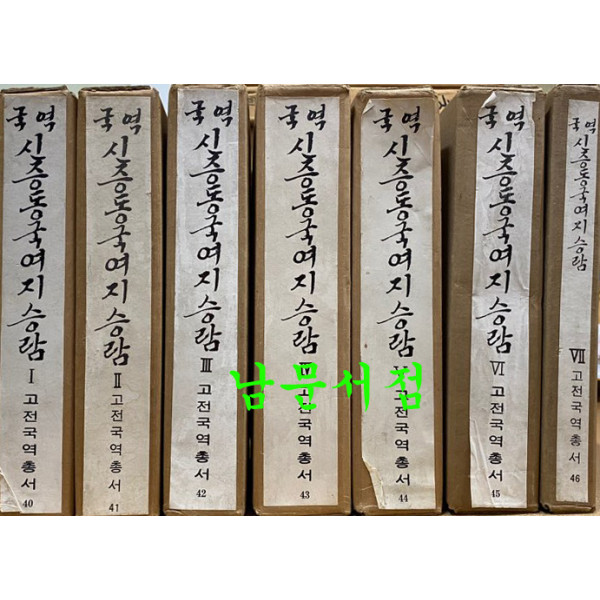 국역
신증동국여지승람
I 고전국역총서
40
국역
신증동국여지승람
II 고전국역총서
41
국역
신증동국여지승람
III 고전국역총서
42
국역
신증동국여지승람
고전국역총서
43
국역
신증동국여지승람
고전국역총서
44
국역
신증동국여지승람
VI 고전국역총서
45
국역
신증동국여지승람
VII 고전국역총서
46
남문서점